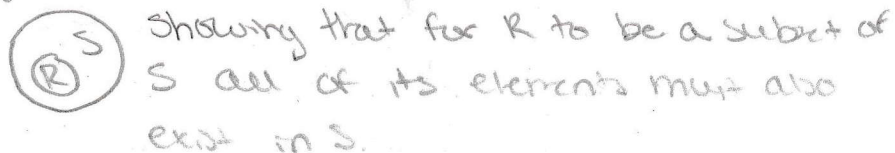 R S Showing that for R to be a subset of
S all of its elements must also
exist in S.